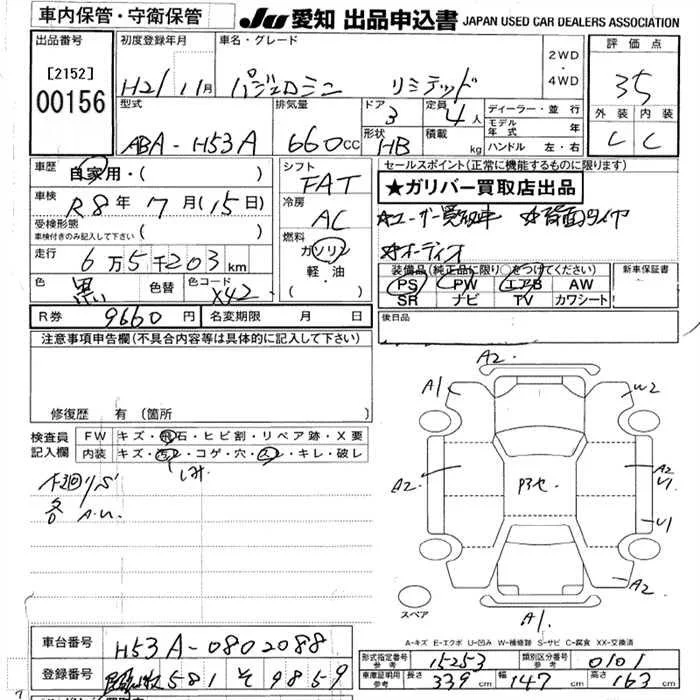 車内保管・守衛保管
JU 愛知 出品申込書 JAPAN USED CAR DEALERS ASSOCIATION
出品番号
[2152]
00156
初度登録年月
H21 11月
車名・グレード
パジェロミニ リミテッド
2WD
・
4WD
評価点
3.5
外装 内装
C C
型式
ABA-H53A
排気量
660cc
ドア
3
形状
HB
定員
4人
積載
kg
ディーラー・並行
モデル年式 年
ハンドル 左・右
車歴
自家用・( )
車検
R8年 7月(15日)
受検形態
車検付きのみ記入して下さい ( )
走行
6万5千203km
色
黒
色替
色コード
X42
シフト
FAT
冷房
AC
燃料
ガソリン
軽・油
( )
セールスポイント(正常に機能するものに限ります)
★ガリバー買取店出品
☆ユーザー買取車 ☆背面タイヤ
☆オーディオ
装備品(純正品に限り○をつけてください)
PS PW エアB AW
SR ナビ TV カワシート
新車保証書
R券 9660円 名変期限 月 日
後日品
注意事項申告欄(不具合内容等は具体的に記入して下さい)
修復歴 有(箇所 )
検査員記入欄
FW キズ・飛石・ヒビ割・リペア跡・X要
内装 キズ・汚レ・コゲ・穴・スレ・キレ・破レ
シミ
各 A.U
A2.
A1
W2
A2
A2
U1
U1
A2
A1.
スペア
A-キズ E-エクボ U-凹み W-補修跡 S-サビ C-腐食 XX-交換済
車台番号
H53A-0802088
登録番号
581 そ 9859
形式指定番号 参考 15253
類別区分番号 参考 0101
車庫証明用 参考 長さ 339cm 幅 147cm 高さ 163cm